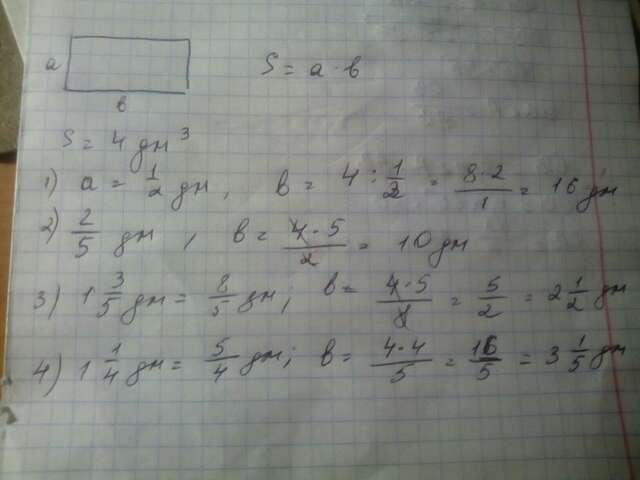 a
в
S = a · в
S = 4 дм³
1) a = 1/2 дм, в = 4 : 1/2 = 8·2/1 = 16 дм
2) 2/5 дм, в = 4·5/2 = 10 дм
3) 1 3/5 дм = 8/5 дм; в = 4·5/8 = 5/2 = 2 1/2 дм
4) 1 1/4 дм = 5/4 дм; в = 4·4/5 = 16/5 = 3 1/5 дм